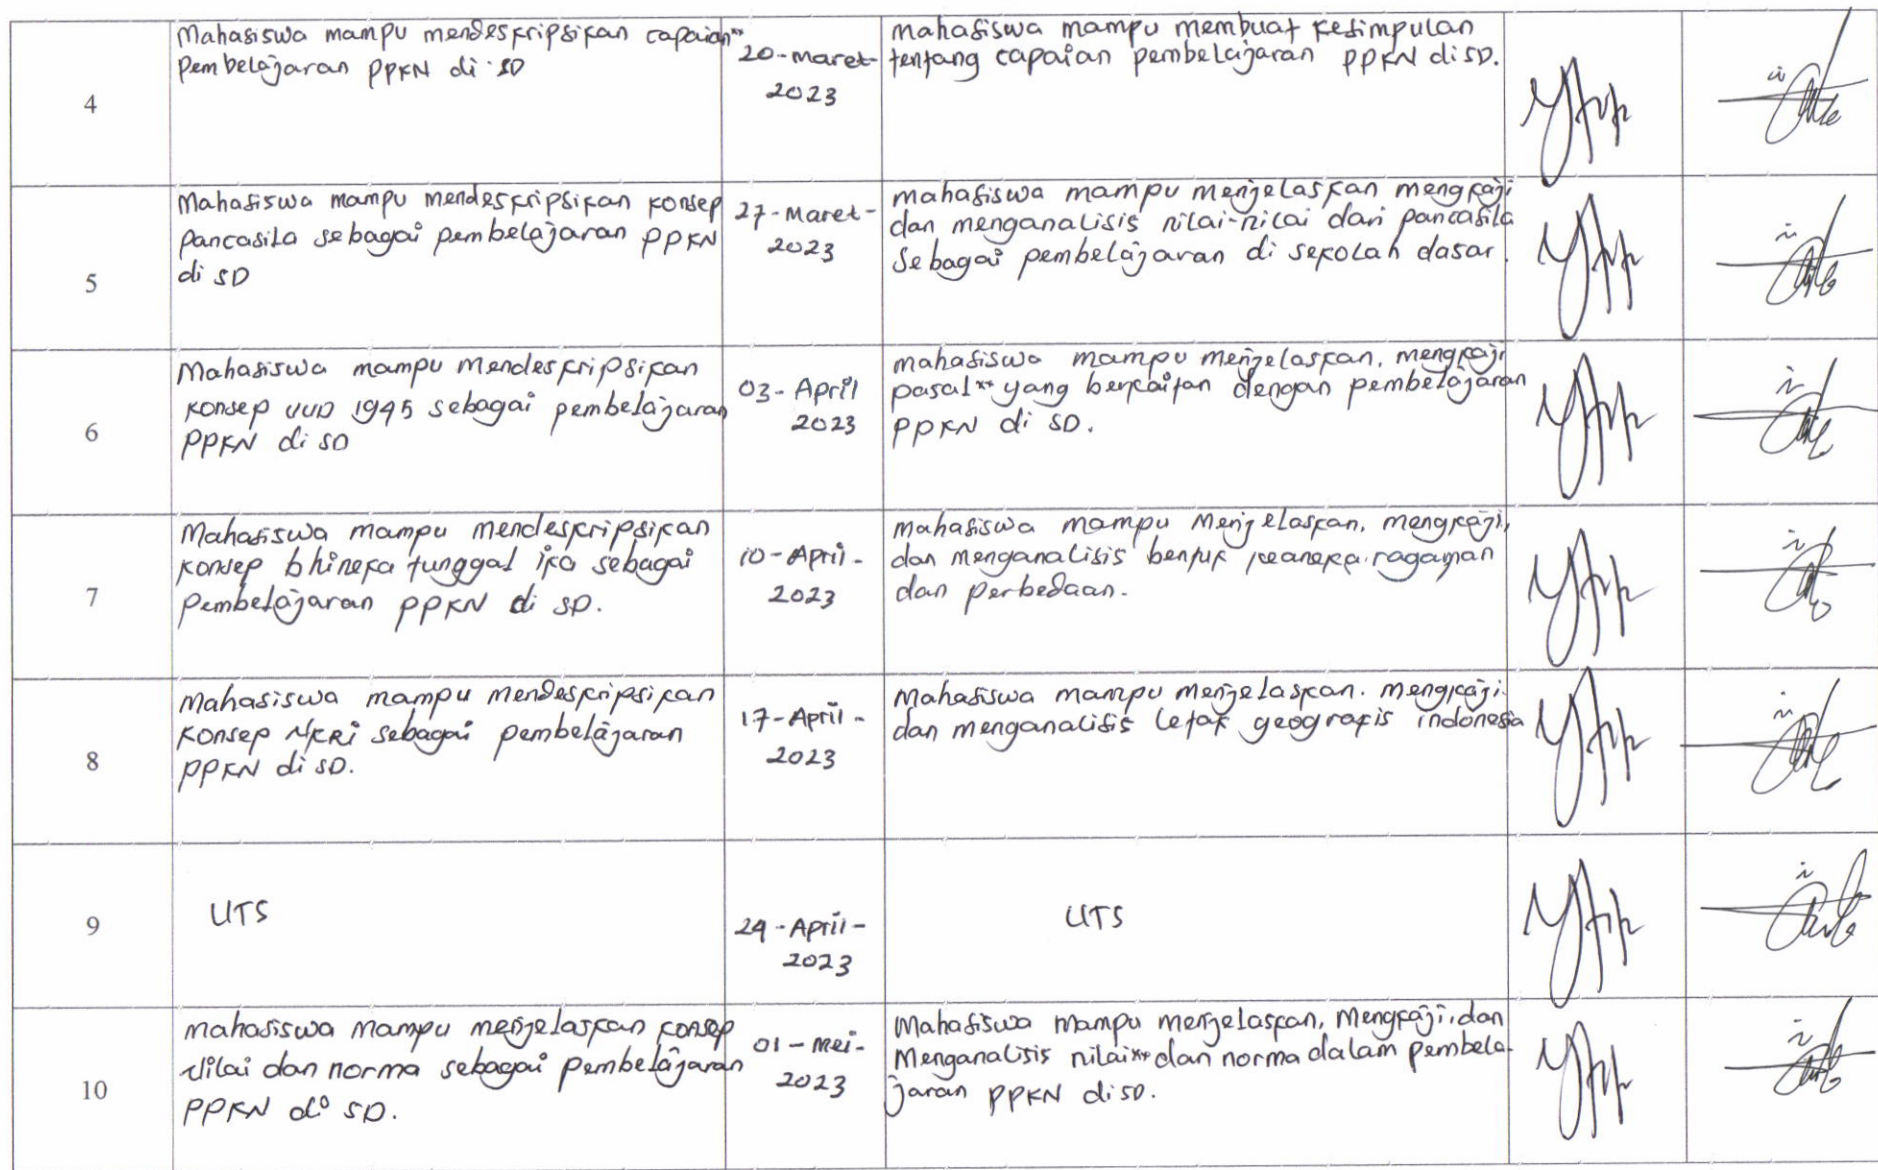 4
Mahasiswa mampu mendeskripsikan capaian"
pembelajaran PPKN di SD
20-maret-
2023
mahasiswa mampu membuat kesimpulan
tentang capaian pembelajaran PPKN di SD.
5
Mahasiswa mampu mendeskripsikan konsep
pancasila sebagai pembelajaran PPKN
di SD
27-Maret-
2023
mahasiswa mampu menjelaskan mengkaji
dan menganalisis nilai-nilai dari pancasila
sebagai pembelajaran di sekolah dasar.
6
Mahasiswa mampu mendeskripsikan
konsep UUD 1945 sebagai pembelajaran
PPKN di SD
03-April
2023
mahasiswa mampu menjelaskan, mengkaji
pasal" yang berkaitan dengan pembelajaran
PPKN di SD.
7
Mahasiswa mampu mendeskripsikan
konsep bhineka tunggal ika sebagai
pembelajaran PPKN di SD.
10-April-
2023
Mahasiswa mampu menjelaskan, mengkaji,
dan menganalisis bentuk keaneka ragaman
dan perbedaan.
8
Mahasiswa mampu mendeskripsikan
konsep NKRI sebagai pembelajaran
PPKN di SD.
17-April-
2023
Mahasiswa mampu menjelaskan. mengkaji.
dan menganalisis letak geografis indonesia
9
UTS
24-April-
2023
UTS
10
mahasiswa mampu menjelaskan konsep
Nilai dan norma sebagai pembelajaran
PPKN di SD.
01-mei-
2023
Mahasiswa mampu menjelaskan, mengkaji, dan
menganalisis nilai" dan norma dalam pembela-
jaran PPKN di SD.